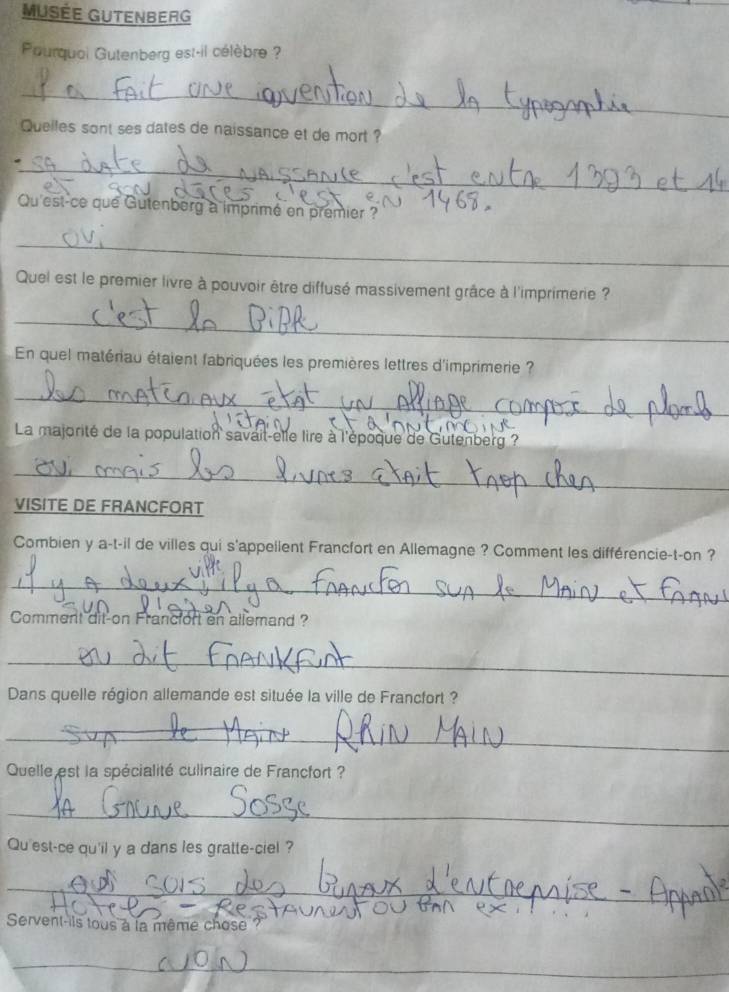 MUSÉE GUTENBERG
Pourquoi Gutenberg est-il célèbre ?
a FAit une invention de la typographie
Quelles sont ses dates de naissance et de mort ?
- SA dAte de NAISSANCE c'est entre 1393 et 14
et son dócés c'est en 1468.
Qu'est-ce que Gutenberg a imprimé en premier ?
oui
Quel est le premier livre à pouvoir être diffusé massivement grâce à l'imprimerie ?
c'est la BiBle
En quel matériau étaient fabriquées les premières lettres d'imprimerie ?
les matériaux étAt un Alliage composé de plomb
d'étAin et d'Antimoine
La majorité de la population savait-elle lire à l'époque de Gutenberg ?
oui mais les livres était trop cher
VISITE DE FRANCFORT
Combien y a-t-il de villes qui s'appellent Francfort en Allemagne ? Comment les différencie-t-on ?
il y A deux ville, il y a FRANcFor SUR le MAiN et FRAN
SUR l'oder.
Comment dit-on Francfort en allemand ?
on dit FRANKFurt
Dans quelle région allemande est située la ville de Francfort ?
sur le MAin RRiN MAiN
Quelle est la spécialité culinaire de Francfort ?
lA GRUNE SosSe
Qu'est-ce qu'il y a dans les gratte-ciel ?
des BureAux d'entreprise - AppArte
Hotels - RestAurent ou BAR ex...
Servent-ils tous à la même chose ?
NON